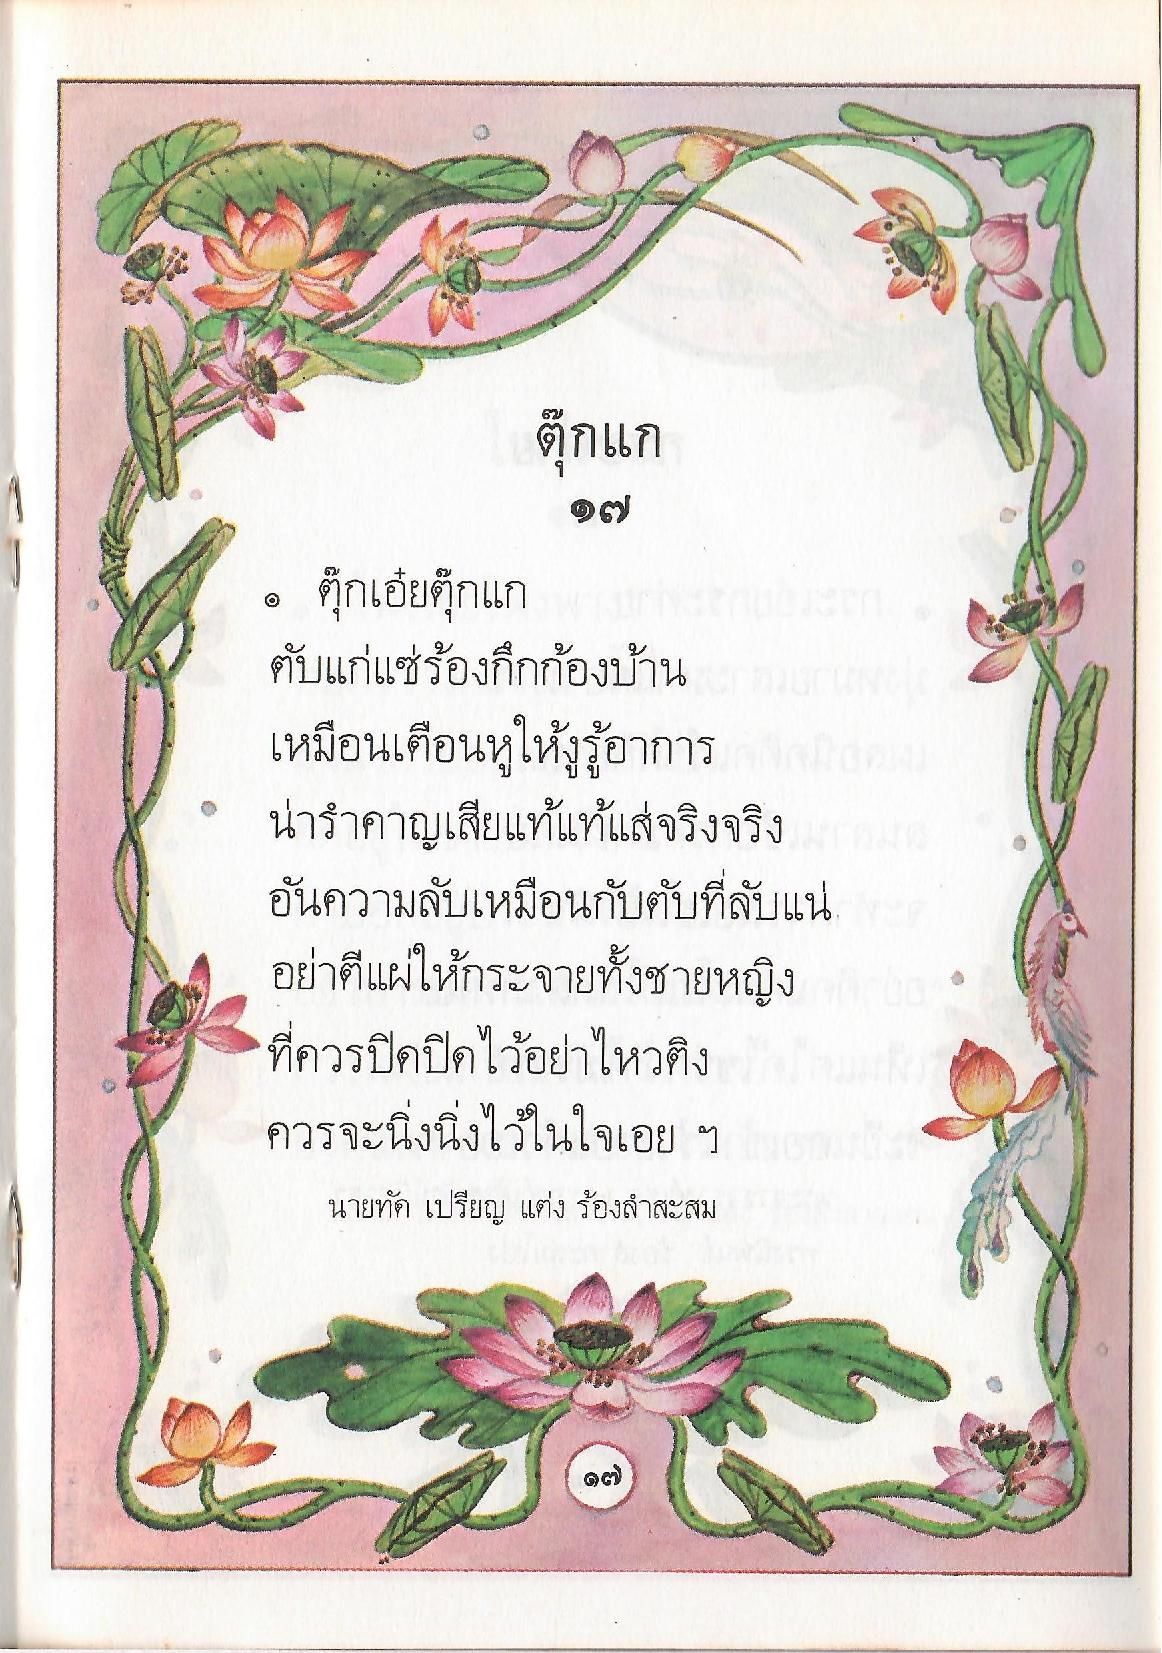 ตุ๊กแก
๑๗
๑ ตุ๊กเอ๋ยตุ๊กแก
ตับแก่แซ่ร้องกึกก้องบ้าน
เหมือนเตือนหูให้งูรู้อาการ
น่ารำคาญเสียแท้แท้แส่จริงจริง
อันความลับเหมือนกับตับที่ลับแน่
อย่าตีแผ่ให้กระจายทั้งชายหญิง
ที่ควรปิดปิดไว้อย่าไหวติง
ควรจะนิ่งนิ่งไว้ในใจเอย ฯ
นายทัด เปรียญ แต่ง ร้องลำสะสม
๑๗